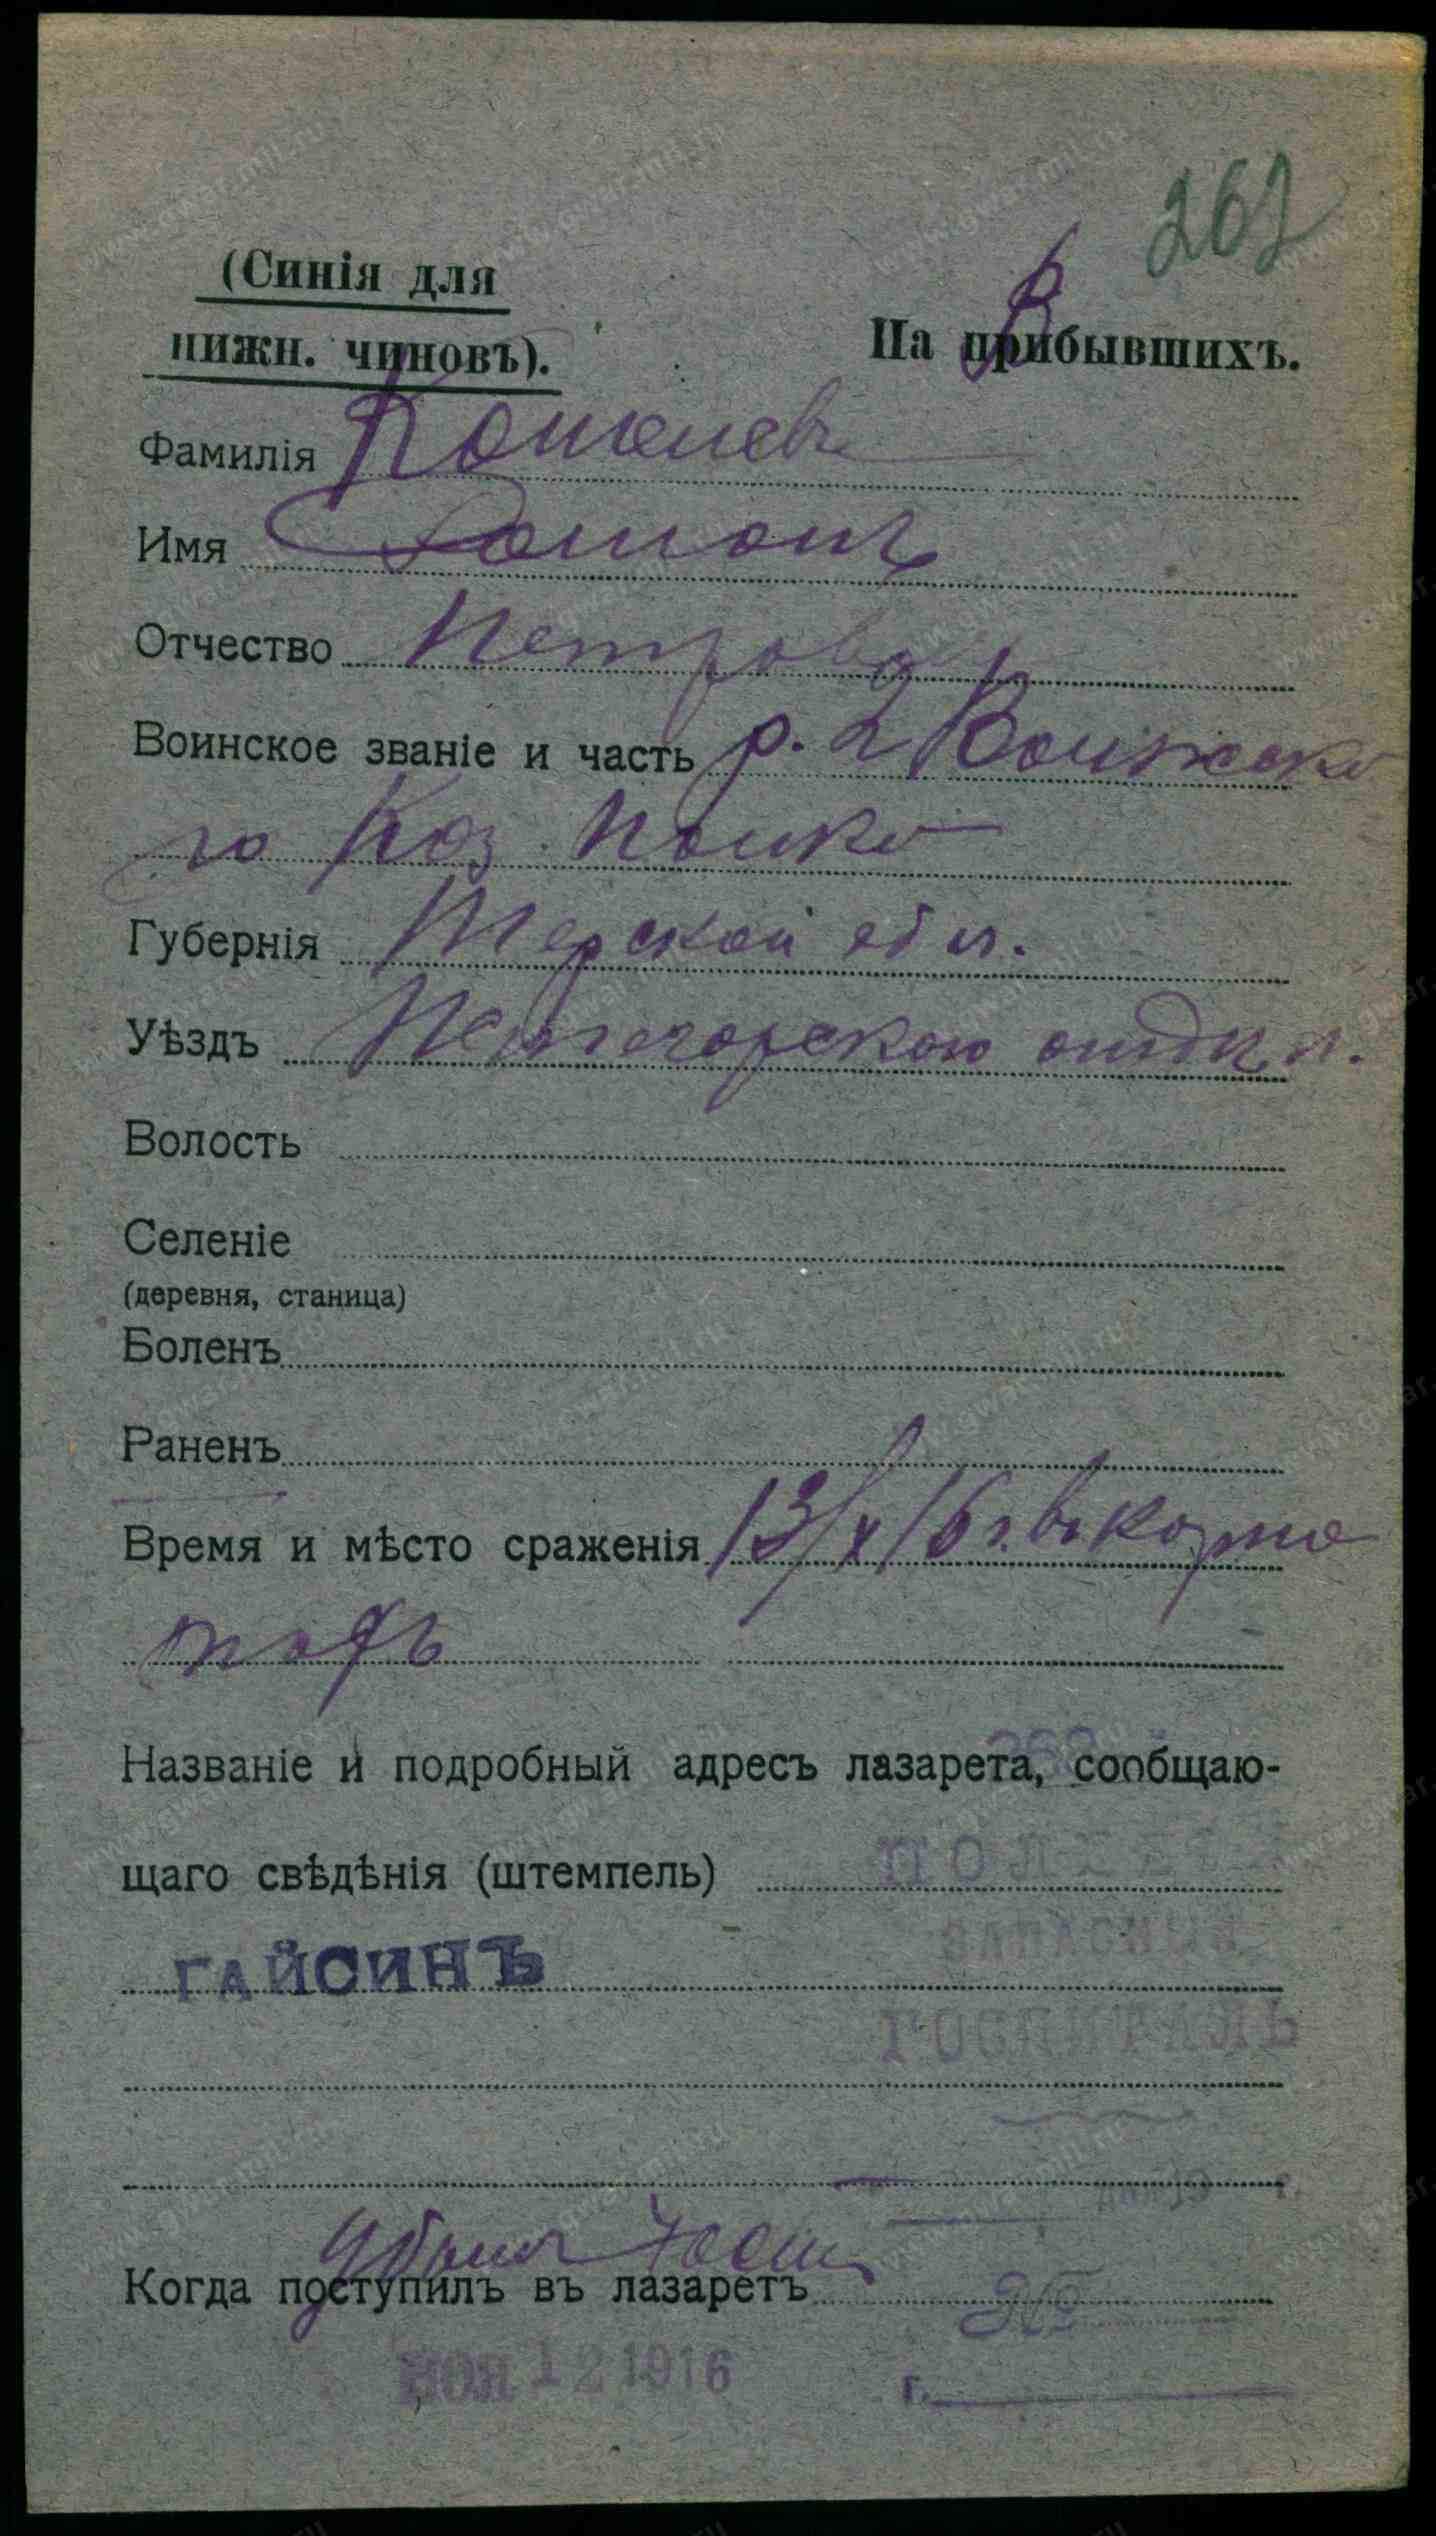 262
(Синія для
нижн. чиновъ).
На прибывшихъ.
В
Фамилія Кошелевъ
Имя Роман
Отчество Петров
Воинское званіе и часть р. 2 Волжско
го Каз. полка
Губернія Терской обл.
Уѣздъ Пятигорскаго отдѣл.
Волость
Селеніе
(деревня, станица)
Боленъ
Раненъ
Время и мѣсто сраженія 13/X 16 г. въ Карпа
тахъ
Названіе и подробный адресъ лазарета, сообщаю-
щаго свѣдѣнія (штемпель)
ПОЛЕВОЙ
ЗАПАСНЫЙ
ГАЙСИНЪ
ГОСПИТАЛЬ
Убылъ
Когда поступилъ въ лазаретъ
НОЯ 12 1916
г.